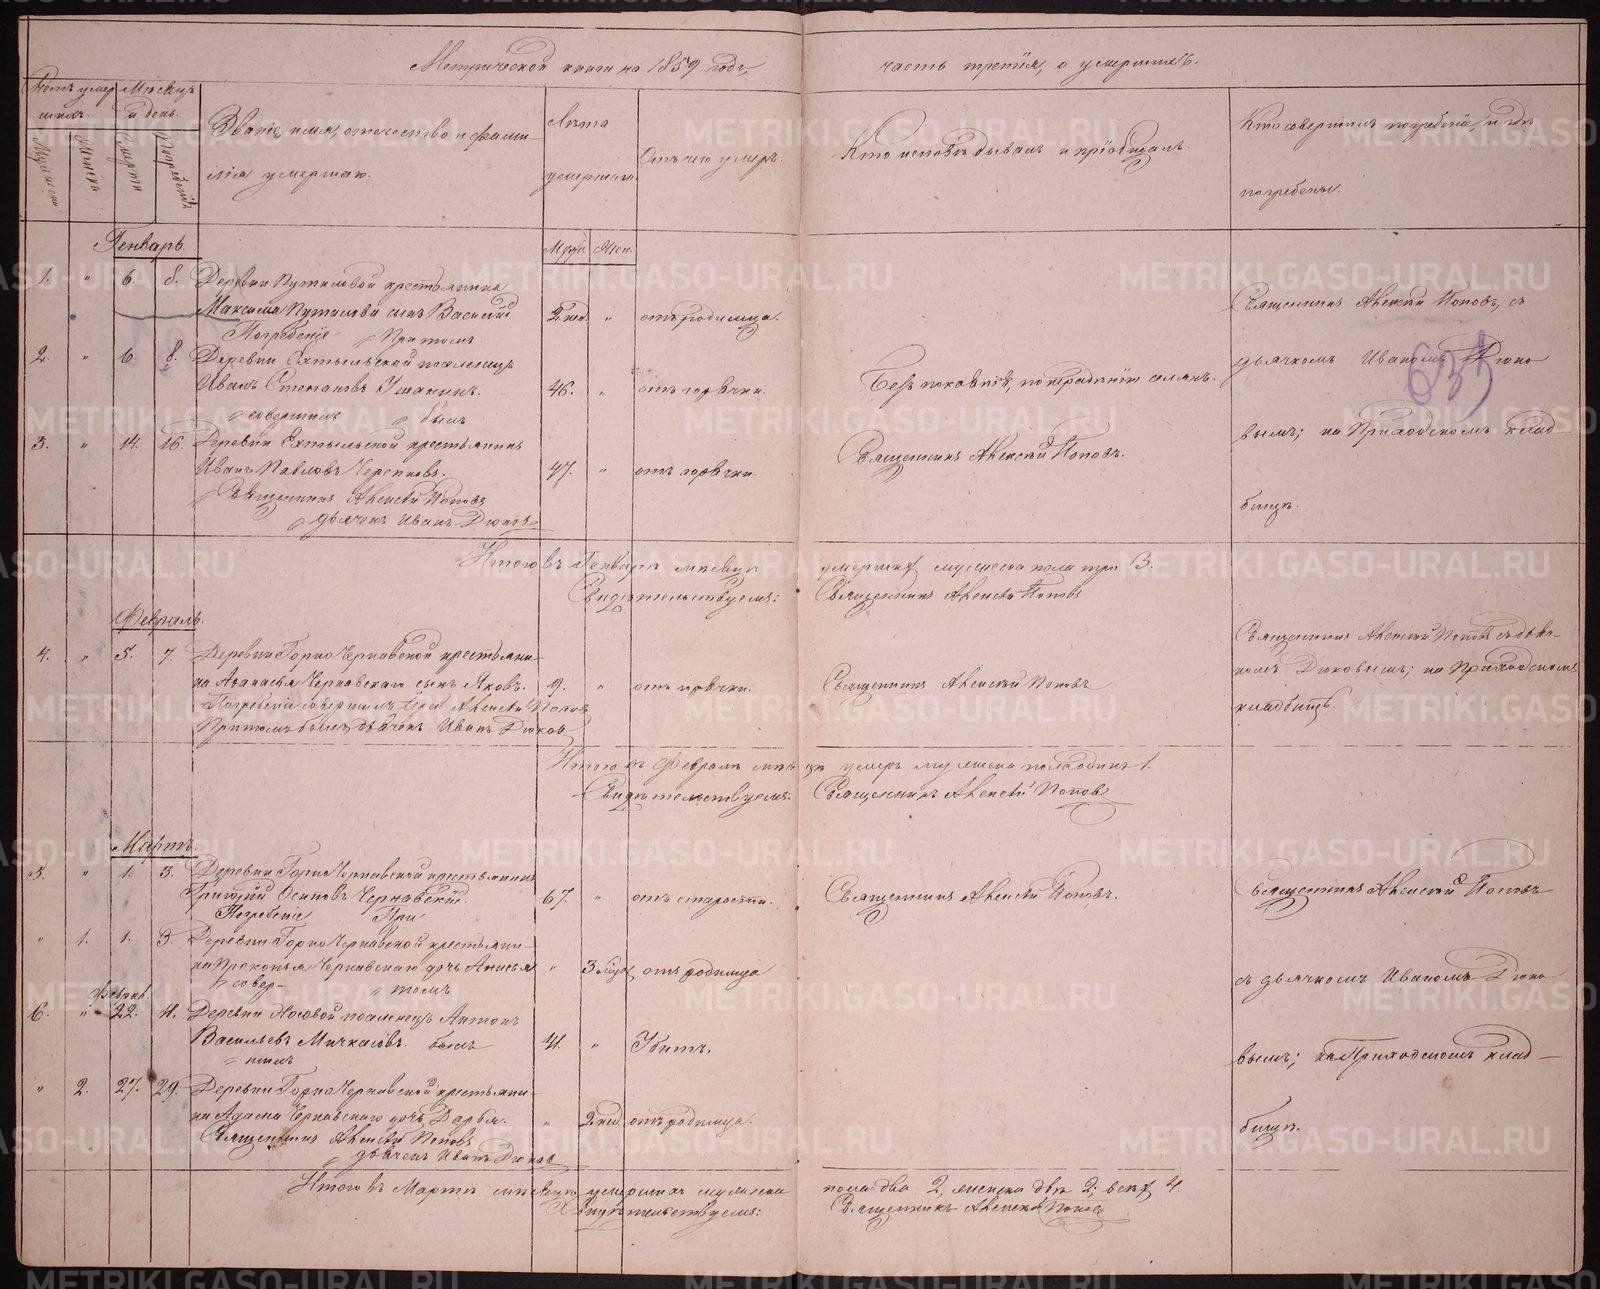 Метрической книги на 1859 годъ, часть третія, о умершихъ.
Счетъ умершихъ.
Мужеска
Женска
Мѣсяцъ и день.
Смерти
Погребенія
Званіе, имя, отчество и фами-
лія умершаго.
Лѣта
умершаго.
Отъ чего умеръ.
Кто исповѣдывалъ и пріобщалъ.
Кто совершилъ погребеніе, и гдѣ
погребены.
Генварь
Муж. Жен.
1. " 6. 8. Деревни Путиловой крестьянина
Максима Путилова сынъ Василій 2 нед. " отъ родимца.
Погребеніе При томъ
2. " 6. 8. Деревни
Иванъ Степановъ Ушакинъ. 46. " отъ горячки.
совершилъ былъ
3. " 14. 16. Деревни крестьянинъ
Иванъ Павловъ 47. " отъ горячки. Священникъ Алексѣй Поповъ.
Священникъ Алексѣй Поповъ
дьячекъ Иванъ Дюковъ
Священникъ Алексѣй Поповъ, съ
дьячкомъ Иваномъ Дюко-
вымъ; на Приходскомъ клад-
бищѣ.
Итого въ Генварѣ мѣсяцѣ умершихъ мужеска пола три 3.
Свидѣтельствуемъ: Священникъ Алексѣй Поповъ
Февраль.
4. " 5. 7. Деревни Горно Чернавской крестьяни-
на Аѳанасья Чернавскаго сынъ Яковъ. 9. " отъ горячки. Священникъ Алексѣй Поповъ
Погребеніе совершилъ Іерей Алексѣй Поповъ
При томъ былъ дьячекъ Иванъ Дюковъ
Священникъ Алексѣй Поповъ съ дьяч-
комъ Дюковымъ; на Приходскомъ
кладбищѣ.
Итого въ Февралѣ мѣсяцѣ умеръ мужеска пола одинъ 1.
Свидѣтельствуемъ: Священникъ Алексѣй Поповъ
Мартъ.
5. " 1. 3. Деревни Горно Чернавской крестьянинъ
Григорій Осиповъ Чернавскій. 67. " отъ старости. Священникъ Алексѣй Поповъ.
Погребеніе При
" 1. 1. 3. Деревни Горно Чернавской крестьяни-
на Прокопья Чернавскаго дочь Анисья " 3 отъ родимца
совер- томъ
Феврал.
6. " 22. 11. Деревни Носовой поселенецъ Антонъ
Васильевъ Мичкасовъ. былъ 41. " Убитъ.
шилъ
" 2. 27. 29. Деревни Горно Чернавской крестьяни-
на Адама Чернавскаго дочь Дарья. " 2 нед. отъ родимца.
Священникъ Алексѣй Поповъ
дьячекъ Иванъ Дюковъ
Священникъ Алексѣй Поповъ
съ дьячкомъ Иваномъ Дюко-
вымъ; на Приходскомъ клад-
бищѣ.
Итого въ Мартѣ мѣсяцѣ умершихъ мужеска пола два 2, женска двѣ 2; всѣхъ 4.
Свидѣтельствуемъ: Священникъ Алексѣй Поповъ
METRIKI.GASO-URAL.RU